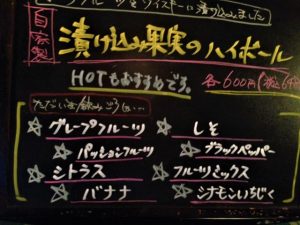 フルーツをウイスキーに漬け込みました
自家製
漬け込み果実のハイボール
HOTもおすすめです。
各600円(税込
ただいま飲みごろは…
グレープフルーツ
しそ
パッションフルーツ
ブラックペッパー
シトラス
フルーツミックス
バナナ
シナモンいちじく